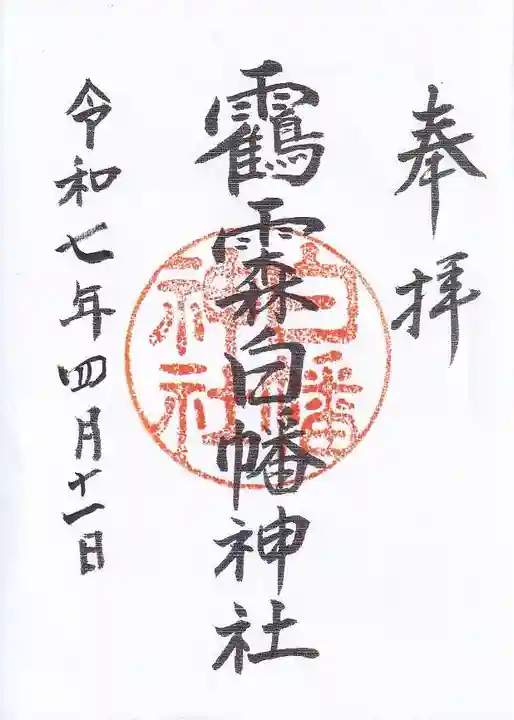 奉拝
靍霖白幡神社
令和七年四月十一日
白幡神社